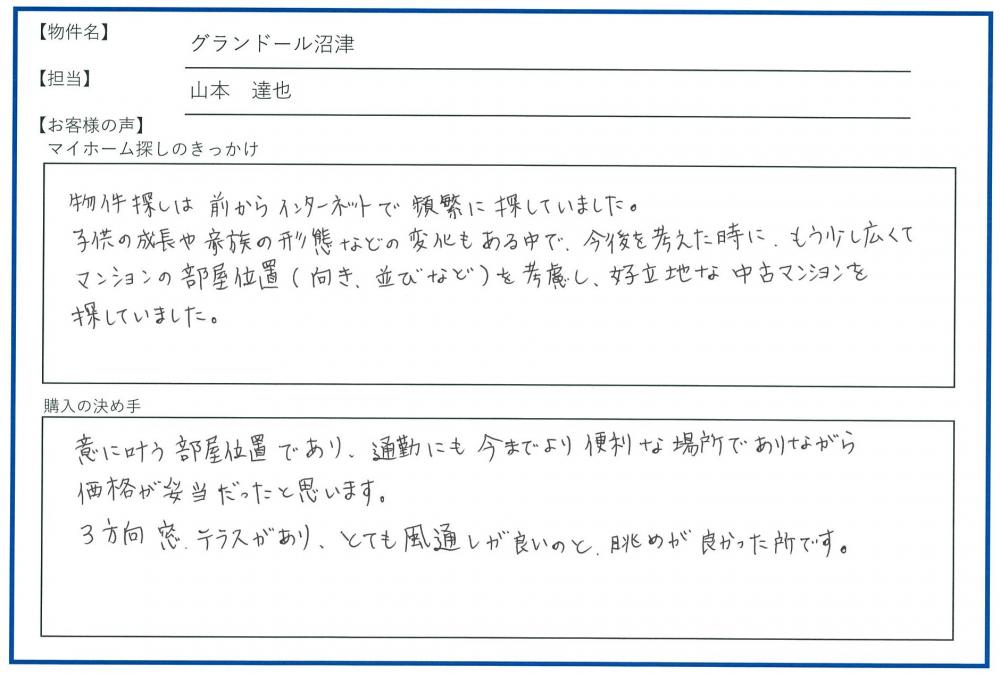 【物件名】
グランドール沼津
【担当】
山本　達也
【お客様の声】
マイホーム探しのきっかけ
物件探しは 前からインターネットで 頻繁に 探していました。
子供の成長や 家族の形態などの 変化もある中で、今後を考えた時に、もう少し広くて
マンションの 部屋位置(向き、並びなど)を 考慮し、好立地な 中古マンションを
探していました。
購入の決め手
意に叶う 部屋位置であり、通勤にも 今までより 便利な 場所でありながら
価格が妥当だったと思います。
3方向 窓、テラスがあり、とても風通しが良いのと、眺めが 良かった所です。